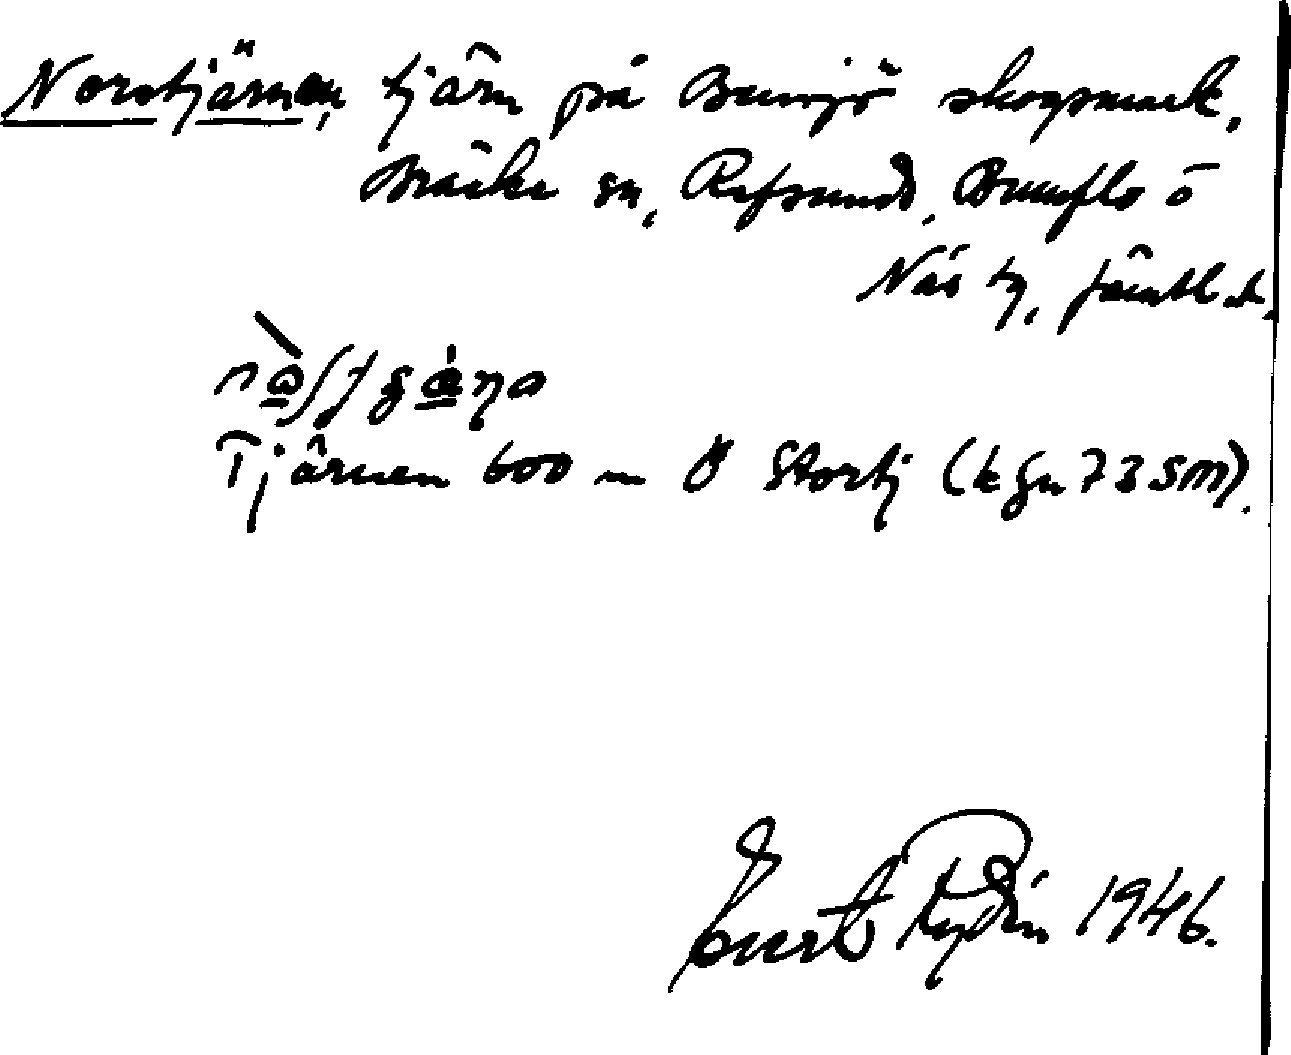 Norstjärnen, tjärn på Bensjö skogsmark,
Bräcke sn, Refsunds, Brunflo o
Näs tg, Jämtl.
Tjärnen 600 m Ö Stortj (kgn 73 SM).
Curt Rydin 1946.